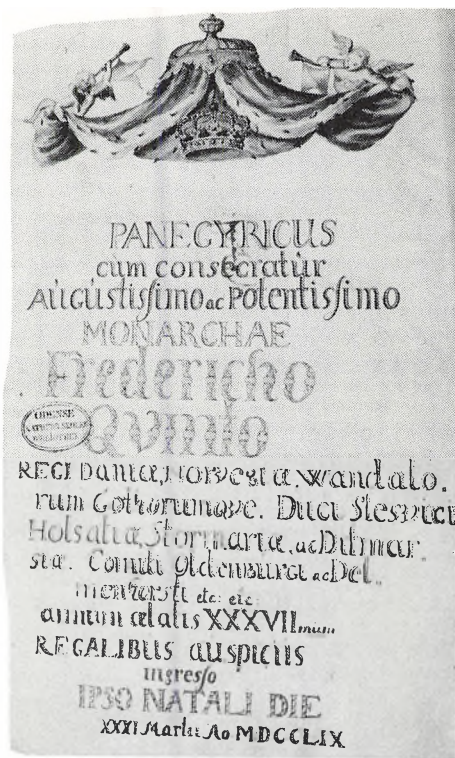 PANEGYRICUS
cùm consecratùr
Aùgùstissimo ac Potentissimo
MONARCHAE
Fredericho
Qvinto
ODENSE
REGI Daniæ, Norvegiæ, Wandalo.
rum Gothorumqve. Duci Slesvici
Holsatiæ, Stormariæ, ac Ditmar
siæ. Comiti Oldenburgi ac Del.
menhorsti etc: etc:
annum ætatis XXXVIImum
REGALIBUS auspiciis
ingresso
IPSO NATALI DIE
XXXI Martii Ao MDCCLIX